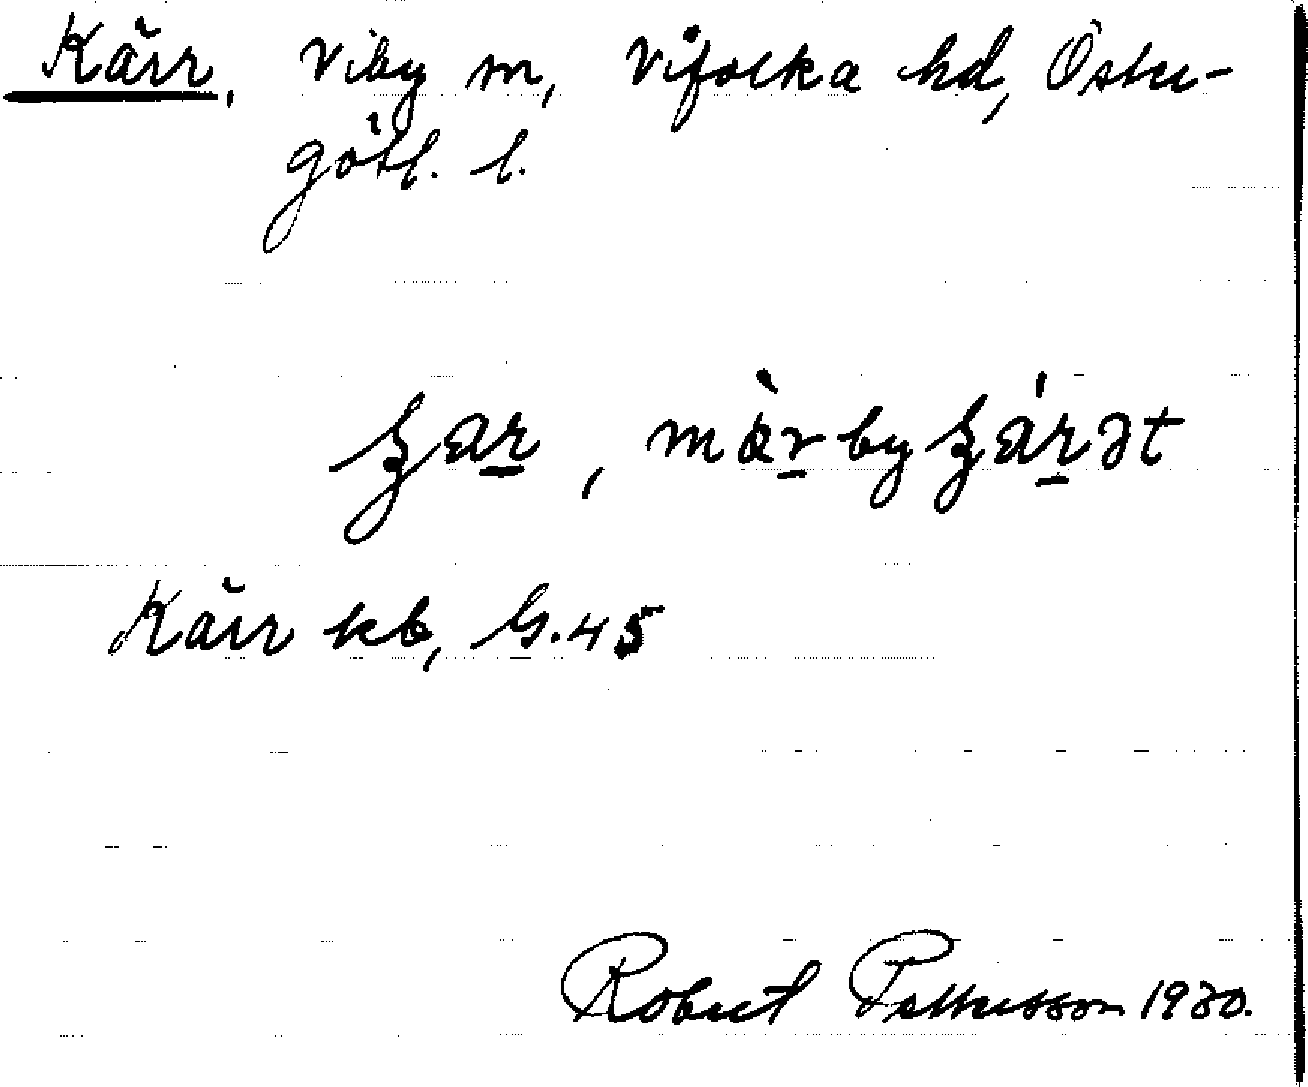 Kärr, Viby sn, Vifolka hd, Öster-
götl. l.
Kärr kb, G.45
Robert Pettersson 1930.